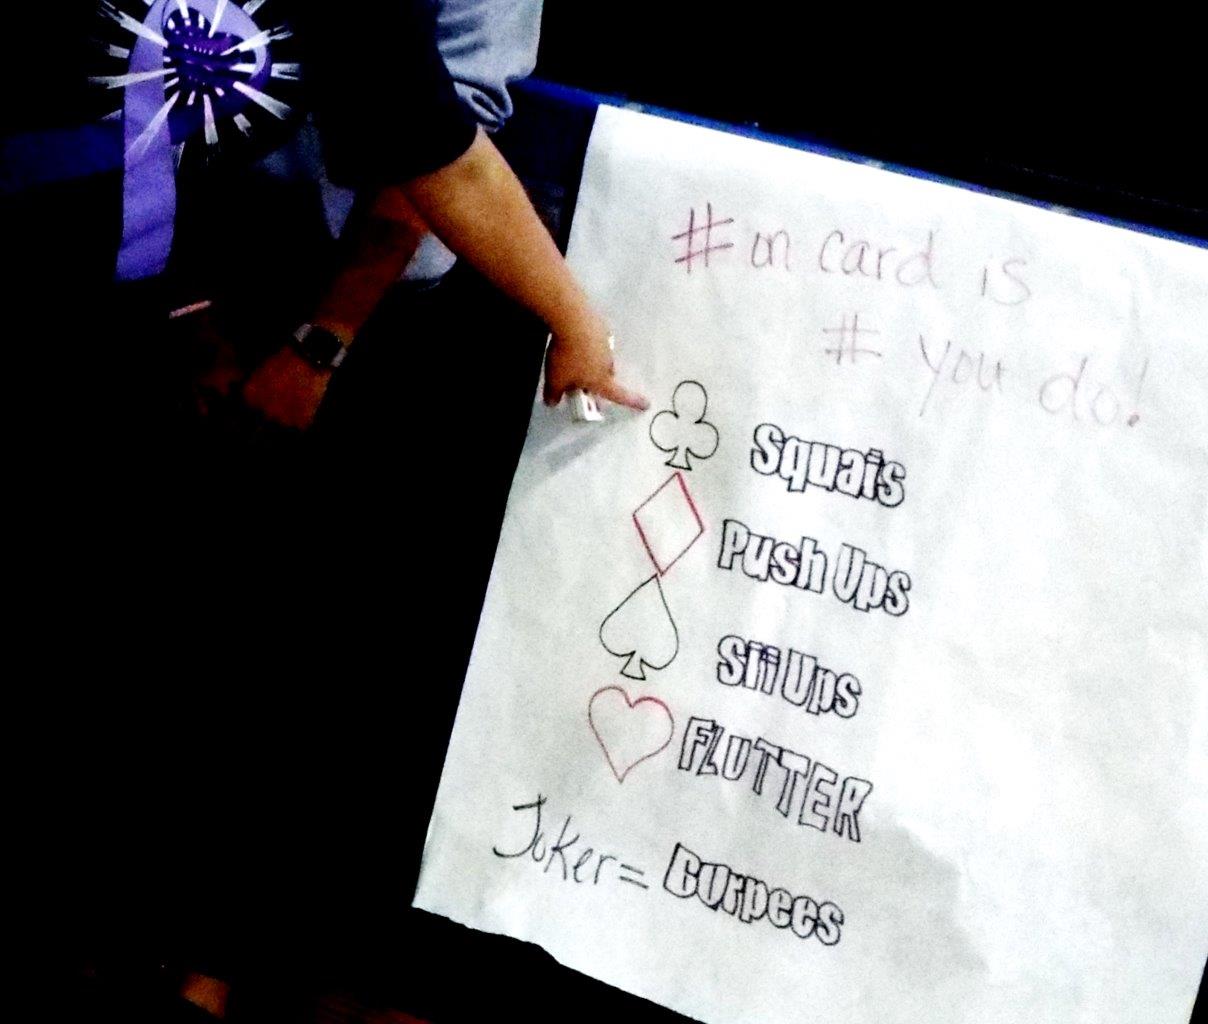 # on card is
# you do!
Squats
Push Ups
Sit Ups
FLUTTER
Joker = Burpees